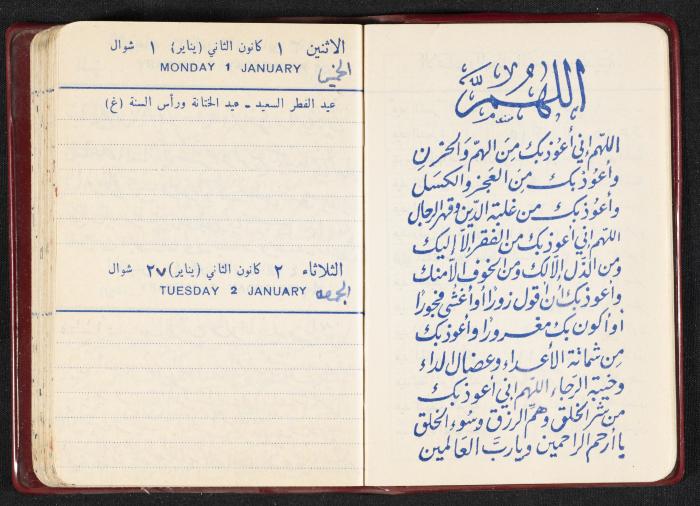 الاثنين ١ كانون الثاني (يناير) ١ شوال
MONDAY 1 JANUARY
الخميس
عيد الفطر السعيد - عيد الختانة ورأس السنة (غ)
الثلاثاء ٢ كانون الثاني (يناير) ٢٧ شوال
TUESDAY 2 JANUARY
الجمعة
اللهم
اللهم إني أعوذ بك من الهمّ والحزن
وأعوذ بك من العجز والكسل
وأعوذ بك من غلبة الدّين وقهر الرجال
اللهم اني أعوذ بك من الفقر إلا إليك
ومن الذّل إلا لك ومن الخوف الا منك
وأعوذ بك ان اقول زوراً أو أغشى فجوراً
أو أكون بك مغروراً وأعوذ بك
من شماتة الأعداء وعضال الداء
وخيبة الرجاء اللهم اني أعوذ بك
من شر الخلق وهمّ الرزق وسوء الخلق
يا أرحم الراحمين ويا ربَّ العالمين